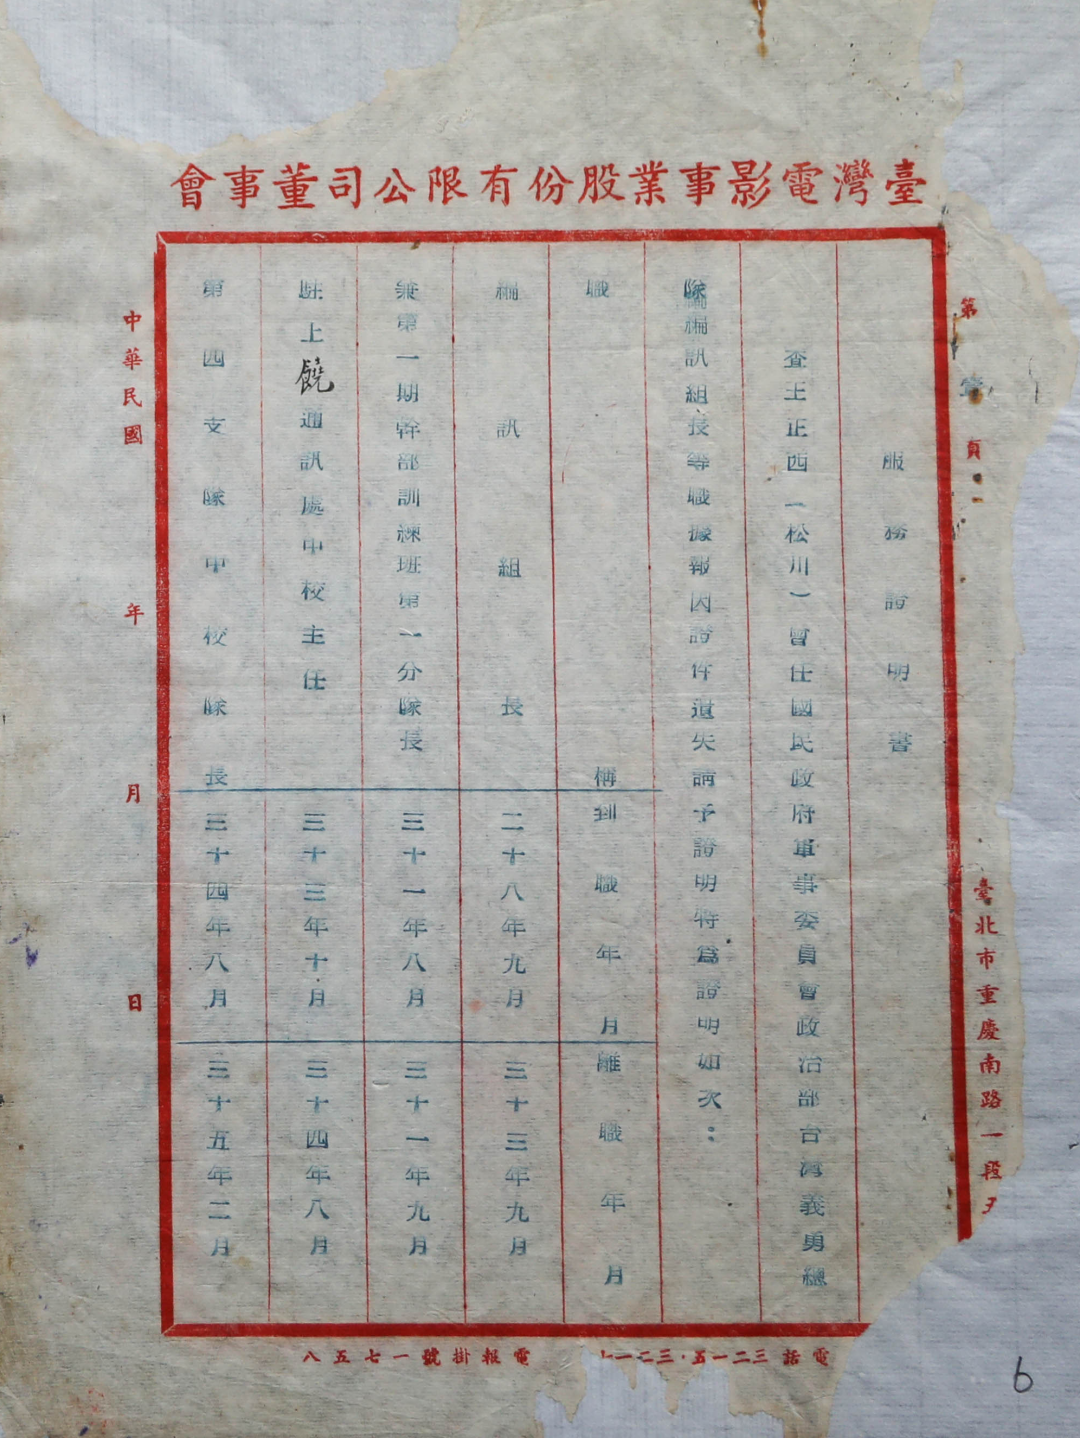 臺灣電影事業股份有限公司董事會
第 頁
臺北市重慶南路一段
服務證明書
查王正西(松川)曾任國民政府軍事委員會政治部台灣義勇總
隊編訊組長等職據報因證件遺失請予證明特爲證明如次：
職稱 到職年月 離職年月
編訊組長 二十八年九月 三十三年九月
兼第一期幹部訓練班第一分隊長 三十一年八月 三十一年九月
駐上饒通訊處中校主任 三十三年十月 三十四年八月
第四支隊中校隊長 三十四年八月 三十五年二月
中華民國 年 月 日
電話三二一五·三二一
電報掛號一七五八
6